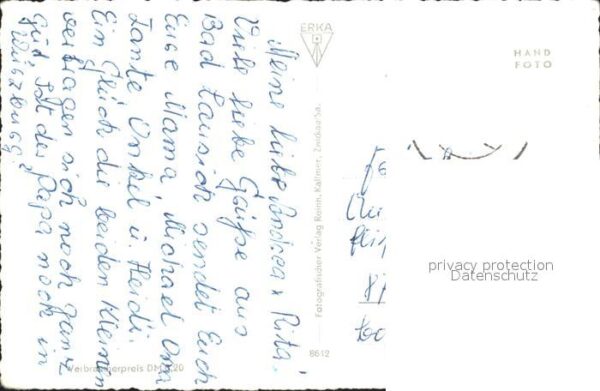 Meine liebe Andrea u Rita!
Viele liebe Grüße aus
Bad Lausick sendet Euch
Eure Mama, Michael Oma
Tante Onkel u. Heidi.
Ein Glück die beiden Kleinen
vertragen sich noch ganz
gut. Ist der Papa noch in
ERKA
HAND
FOTO
Fotografischer Verlag Romm. Kallmer, Zwickau-Sa.
8612
Verbraucherpreis DM 0,20
privacy protection
Datenschutz